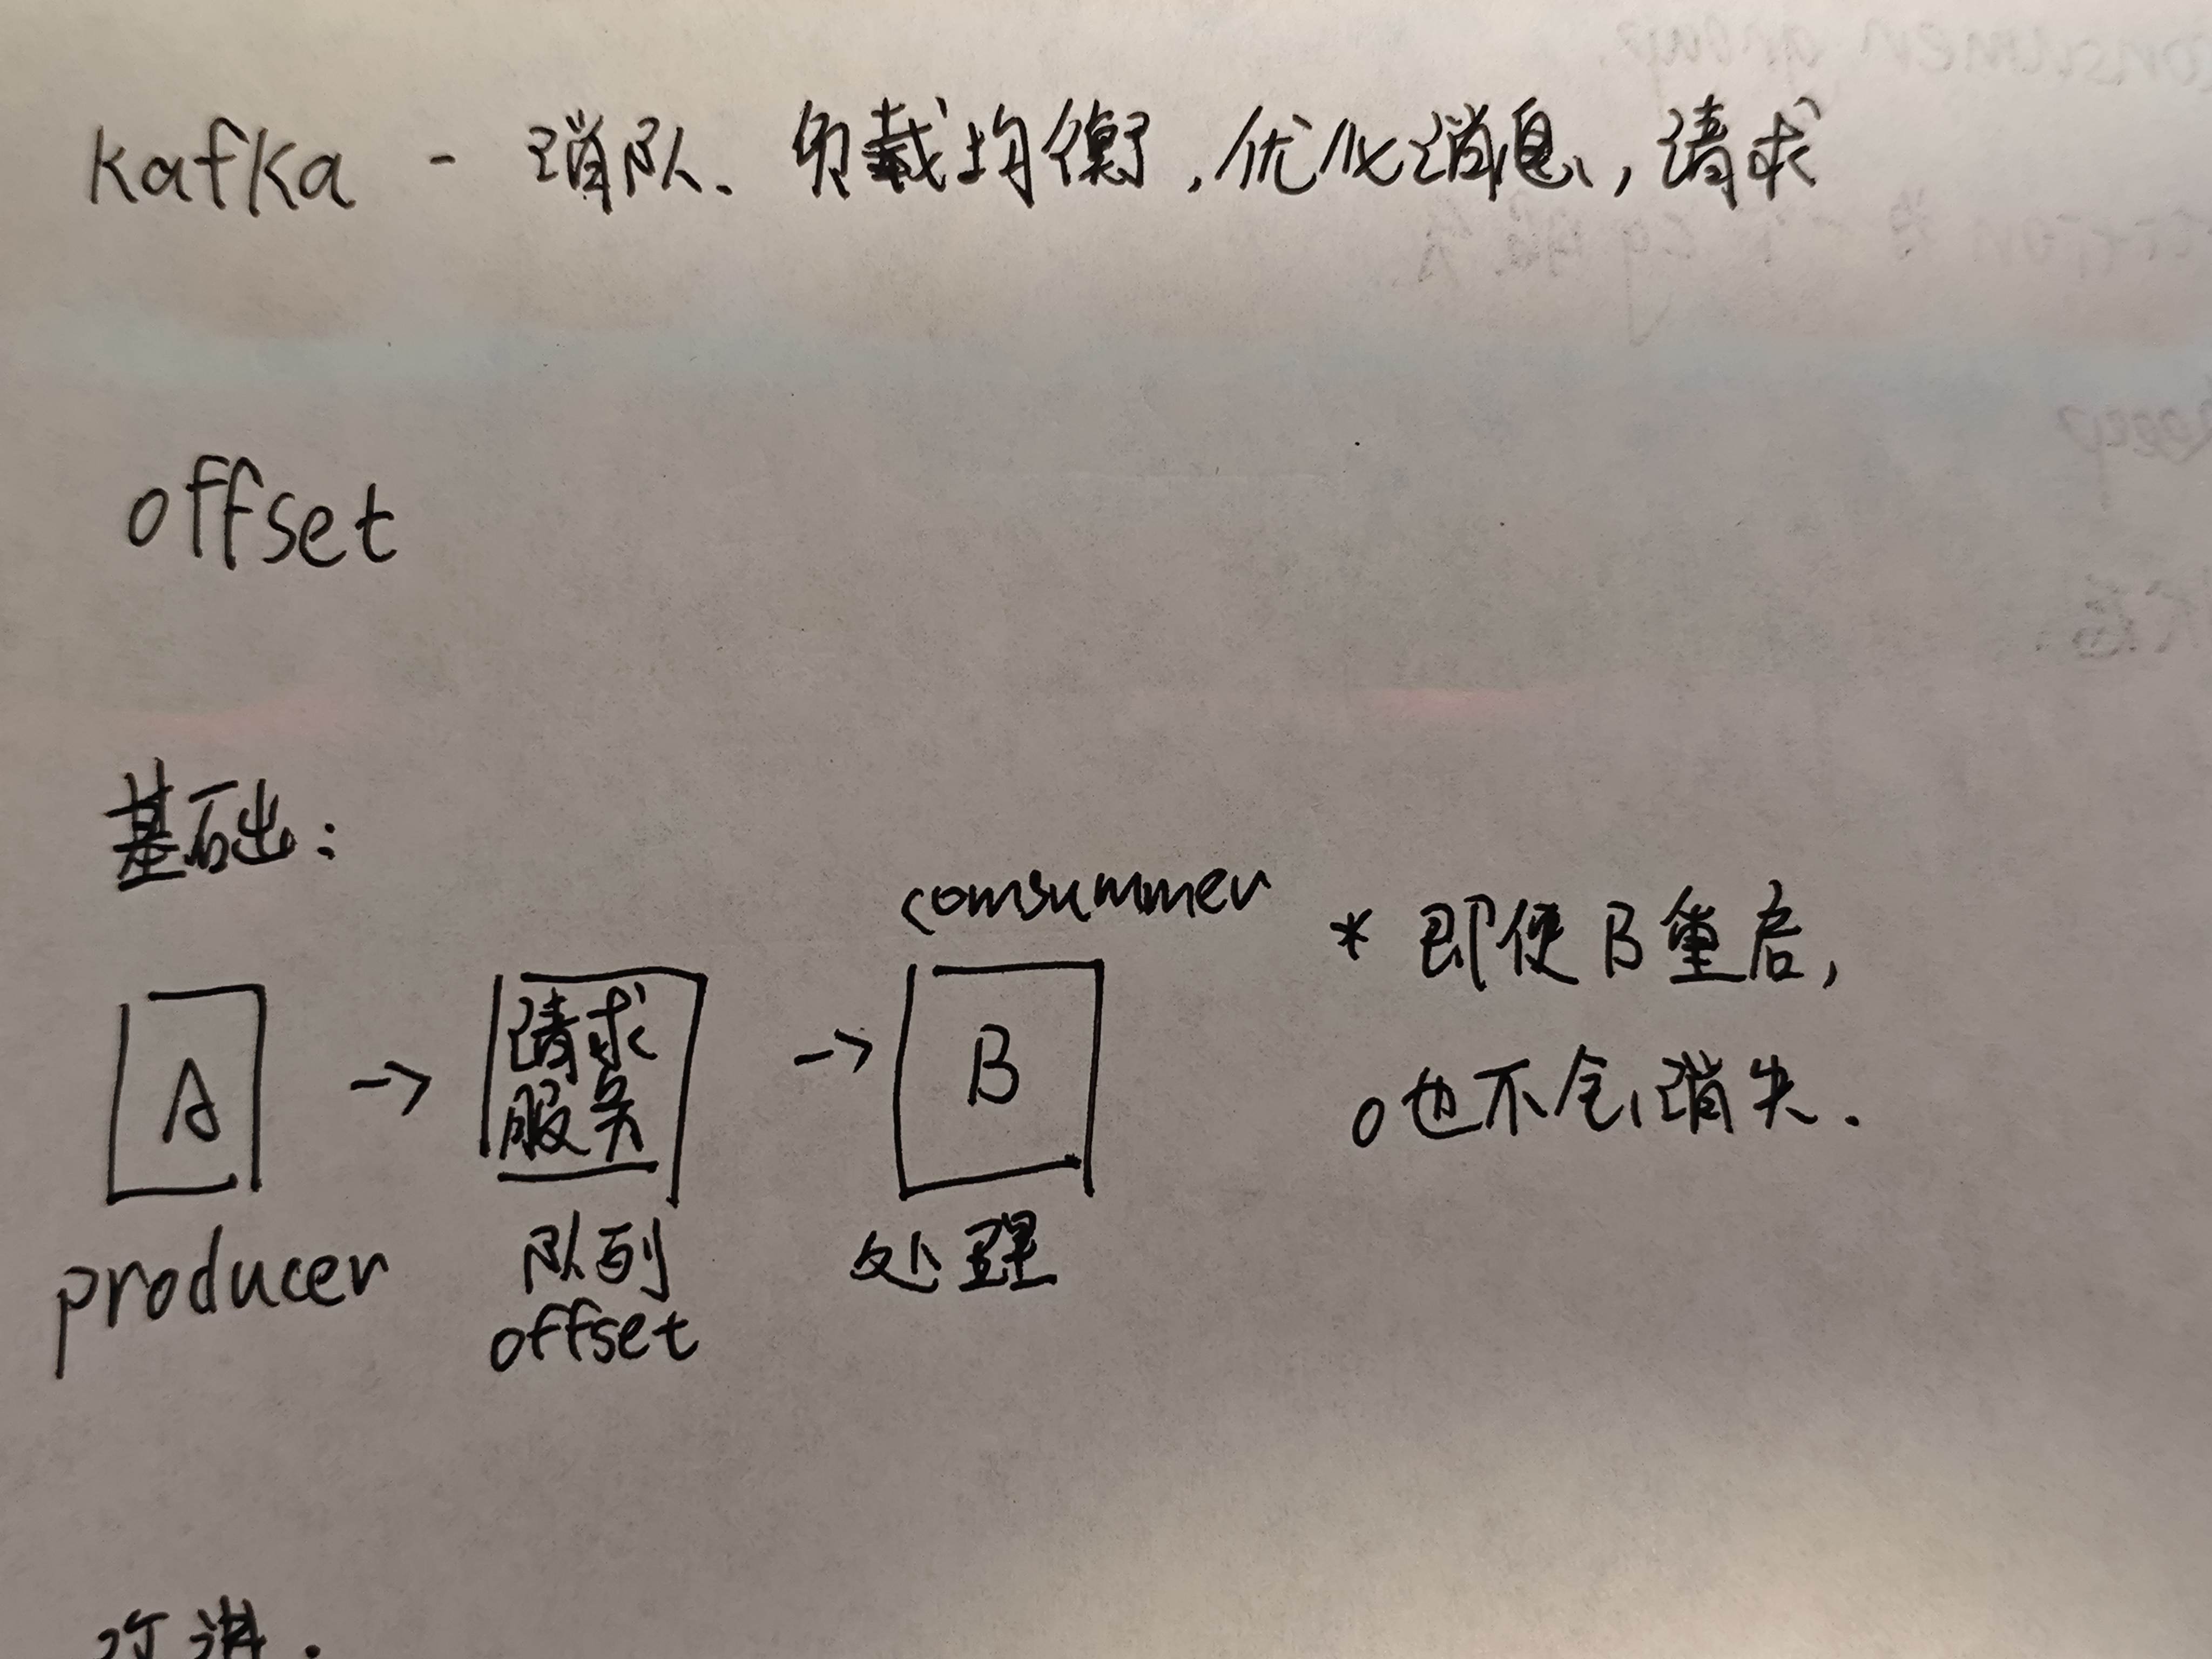 kafka - 消队、负载均衡,优化消息,请求
offset
基础:
comsummer
A -> 请求 -> B
服务
producer
队列
offset
处理
* 即使B重启,
o也不会消失.